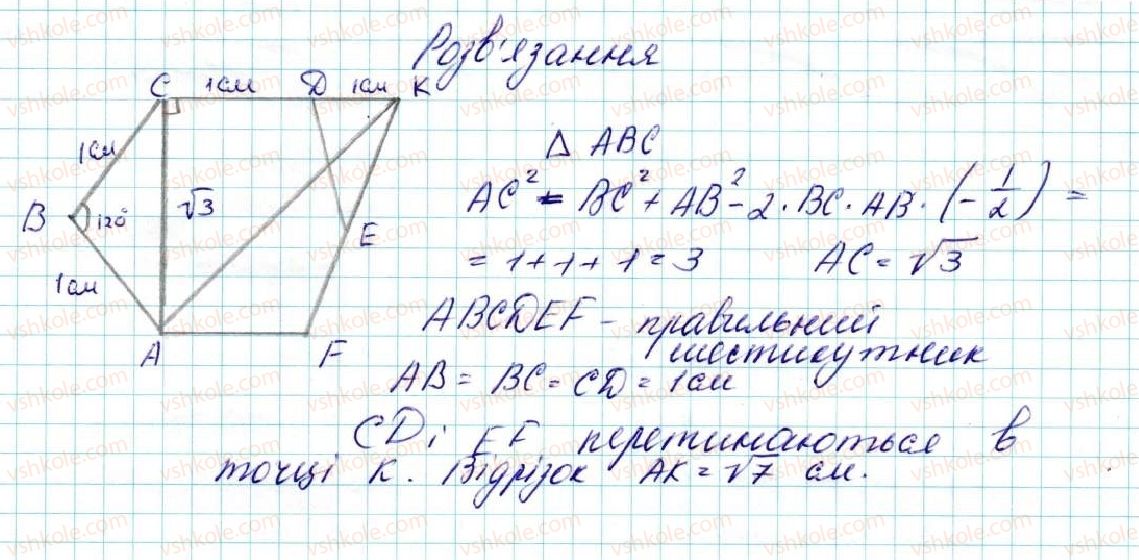 Розв'язання
C 1см D 1см K
1см
√3
B 120°
E
1см
A F
Δ ABC
AC² = BC² + AB² - 2·BC·AB·(-1/2) =
= 1+1+1=3 AC = √3
ABCDEF - правильний
шестикутник
AB = BC = CD = 1см
CD і EF перетинаються в
точці K. Відрізок AK = √7 см.